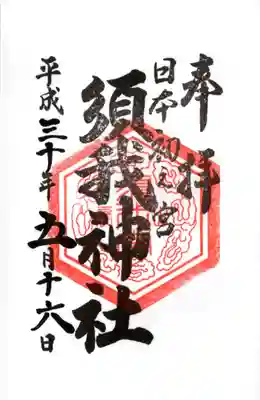 奉拝
日本初之宮
須我神社
平成三十年
五月十六日